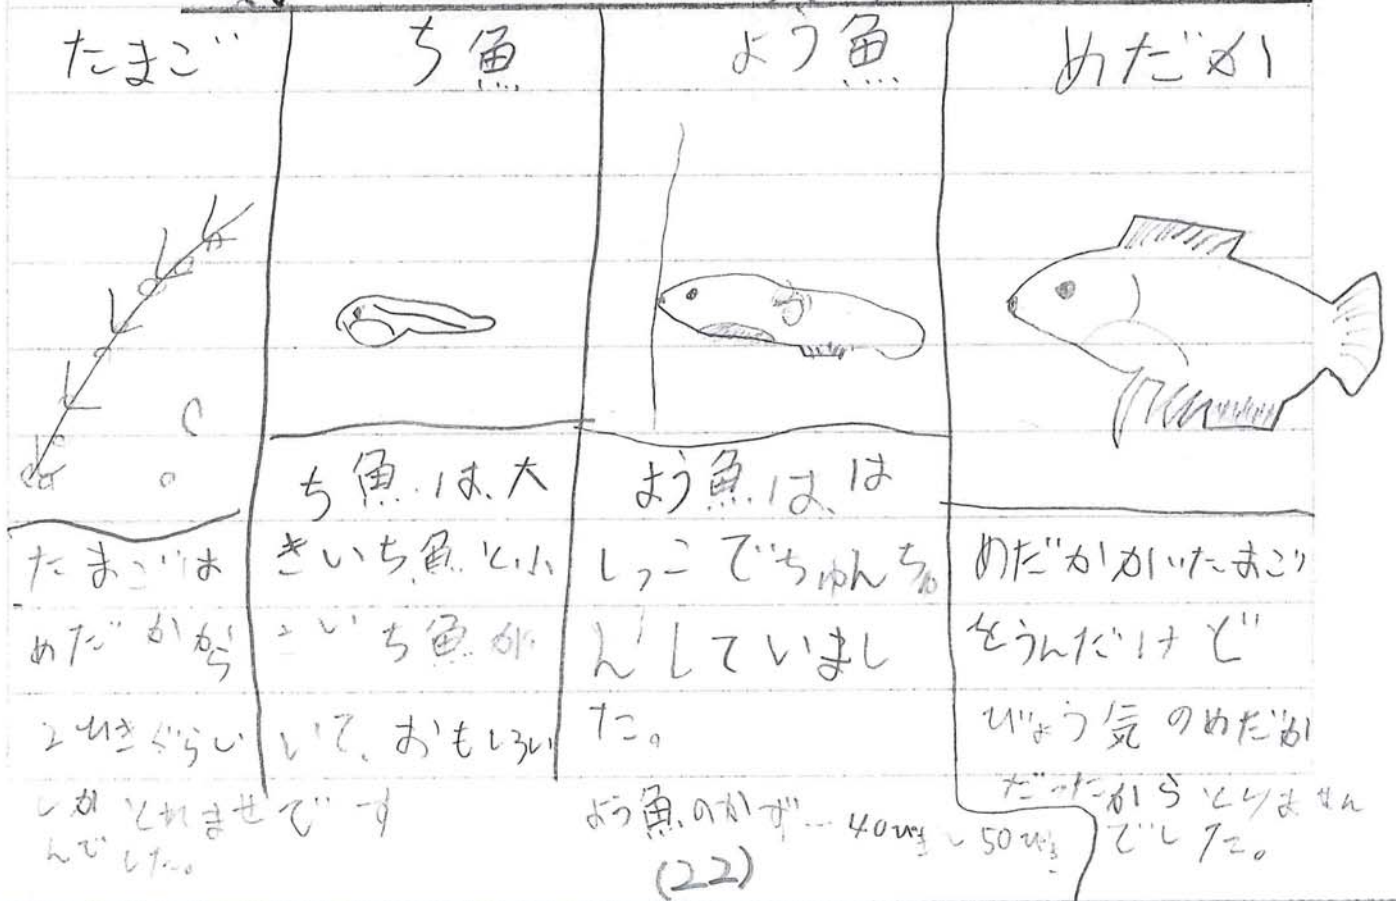 たまご
たまごは
めだかから
2ひきぐらい
しかとれませ
んでした。
ち魚
ち魚は、大
きいち魚と小
さいち魚が
いて、おもしろい
です
よう魚
よう魚は、は
しっこでちゅんちゅ
んしていまし
た。
よう魚のかず…40ひき〜50ひき
めだか
めだかがいたまご
をうんだけど
びょう気のめだか
だったからとりません
でした。
(22)